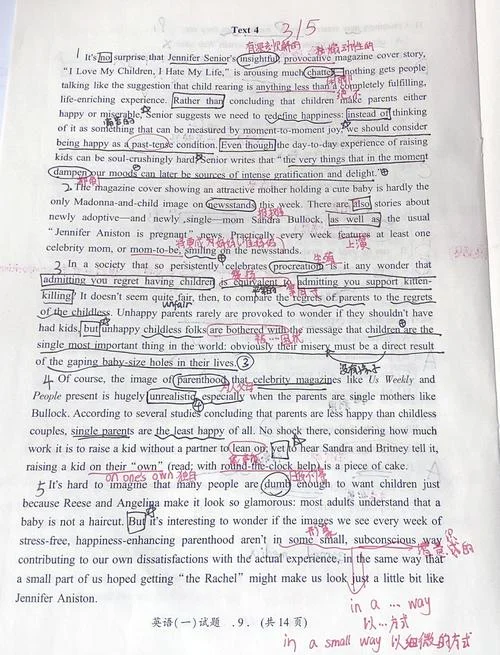 Text 4
3/5
有深刻见解的
1 It's no surprise that Jennifer Senior's insightful, provocative magazine cover story,
“I Love My Children, I Hate My Life,” is arousing much chatter—nothing gets people
talking like the suggestion that child rearing is anything less than a completely fulfilling,
life-enriching experience. Rather than concluding that children make parents either
happy or miserable, Senior suggests we need to redefine happiness: instead of thinking
of it as something that can be measured by moment-to-moment joy, we should consider
being happy as a past-tense condition. Even though the day-to-day experience of raising
kids can be soul-crushingly hard, Senior writes that “the very things that in the moment
dampen our moods can later be sources of intense gratification and delight.”
2 The magazine cover showing an attractive mother holding a cute baby is hardly the
only Madonna-and-child image on newsstands this week. There are also stories about
newly adoptive—and newly single—mom Sandra Bullock, as well as the usual
“Jennifer Aniston is pregnant” news. Practically every week features at least one
celebrity mom, or mom-to-be, smiling on the newsstands.
上演
3 In a society that so persistently celebrates procreation, is it any wonder that
admitting you regret having children is equivalent to admitting you support kitten-
killing? It doesn't seem quite fair, then, to compare the regrets of parents to the regrets
unfair
of the childless. Unhappy parents rarely are provoked to wonder if they shouldn't have
had kids, but unhappy childless folks are bothered with the message that children are the
single most important thing in the world: obviously their misery must be a direct result
of the gaping baby-size holes in their lives. ③
没有孩子
4 Of course, the image of parenthood that celebrity magazines like Us Weekly and
People present is hugely unrealistic, especially when the parents are single mothers like
Bullock. According to several studies concluding that parents are less happy than childless
couples, single parents are the least happy of all. No shock there, considering how
much work it is to raise a kid without a partner to lean on; yet to hear Sandra and Britney tell it,
raising a kid on their “own” (read: with round-the-clock help) is a piece of cake.
on one's own 独自
5 It's hard to imagine that many people are dumb enough to want children just
because Reese and Angelina make it look so glamorous: most adults understand that a
baby is not a haircut. But it's interesting to wonder if the images we see every week of
stress-free, happiness-enhancing parenthood aren't in some small, subconscious way
contributing to our own dissatisfactions with the actual experience, in the same way that
a small part of us hoped getting “the Rachel” might make us look just a little bit like
Jennifer Aniston.
in a … way
以…方式
英语(一)试题 .9. (共14页)
in a small way 以细微的方式